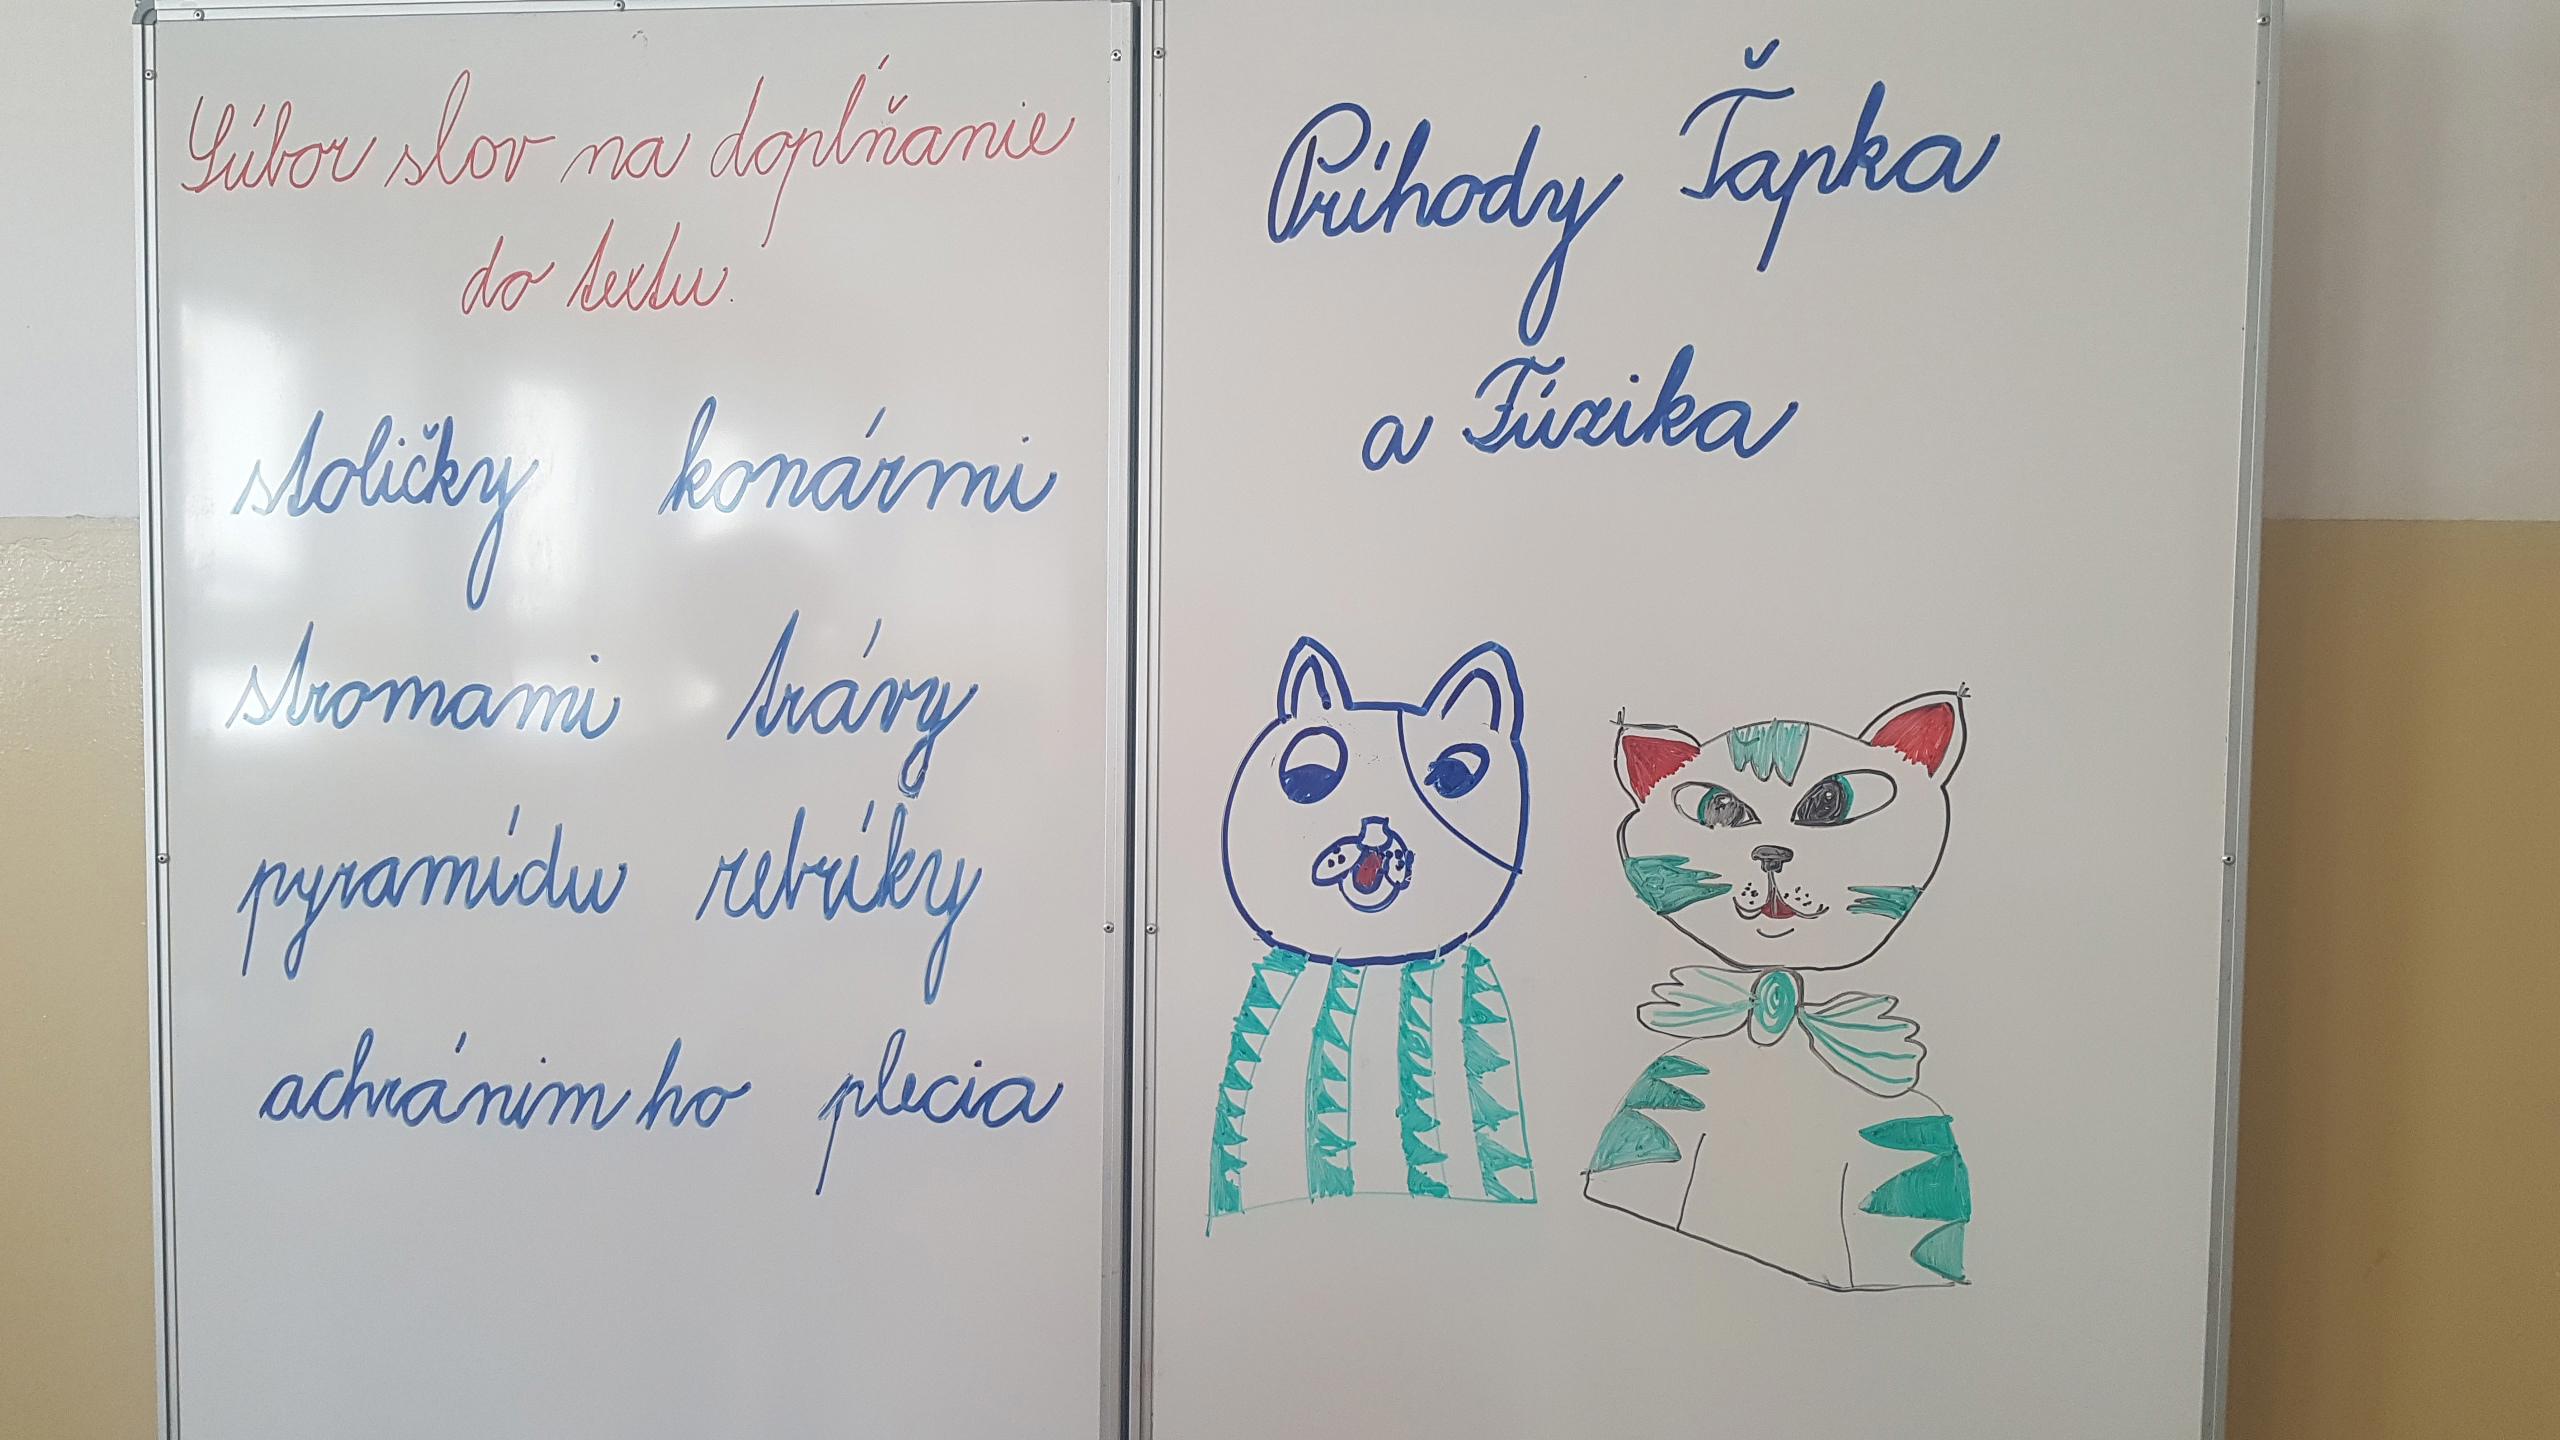 Súbor slov na doplňanie
do textu.
stoličky konármi
stromami trávy
pyramídu rebríky
achránim ho plecia
Príhody Ťapka
a Fúzika